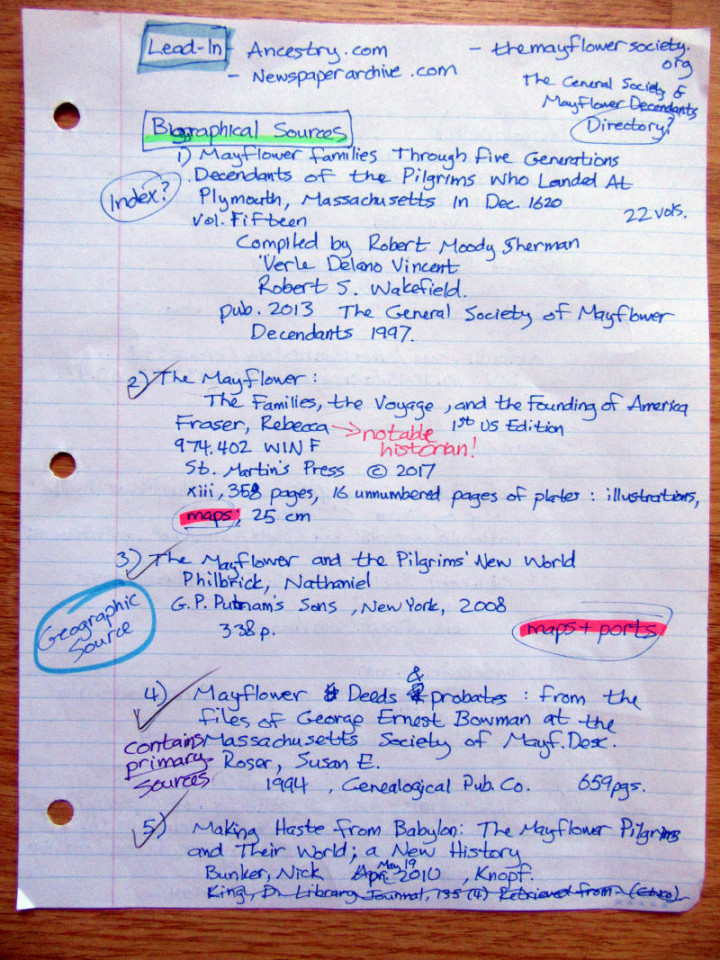 Lead-In - Ancestry.com
- Newspaperarchive.com
- themayflowersociety.
org
The General Society of
Mayflower Decendants
Directory?
Biographical Sources
1) Mayflower families Through Five Generations
Decendants of the Pilgrims Who Landed At
Index?
Plymouth, Massachusetts in Dec. 1620
Vol. Fifteen
22 vols.
Compiled by Robert Moody Sherman
Verle Delano Vincent
Robert S. Wakefield.
pub. 2013 The General Society of Mayflower
Decendants 1997.
2) The Mayflower:
The Families, the Voyage, and the Founding of America
Fraser, Rebecca → notable historian!
1st US Edition
974.402 WIN F
St. Martin's Press © 2017
xiii, 358 pages, 16 unnumbered pages of plates : illustrations,
maps, 25 cm
3) The Mayflower and the Pilgrims' New World
Philbrick, Nathaniel
G.P. Putnam's Sons, New York, 2008
338 p.
maps + ports
Geographic
Source
4) Mayflower Deeds & probates : from the
files of George Ernest Bowman at the
Massachusetts Society of Mayf. Desc.
contains
primary
sources
Roser, Susan E.
1994, Genealogical Pub. Co. 659pgs.
5) Making Haste from Babylon: The Mayflower Pilgrims
and Their World; a New History
Bunker, Nick May 19 2010, Knopf.
King, D. Library Journal, 135 (4) Retrieved from -